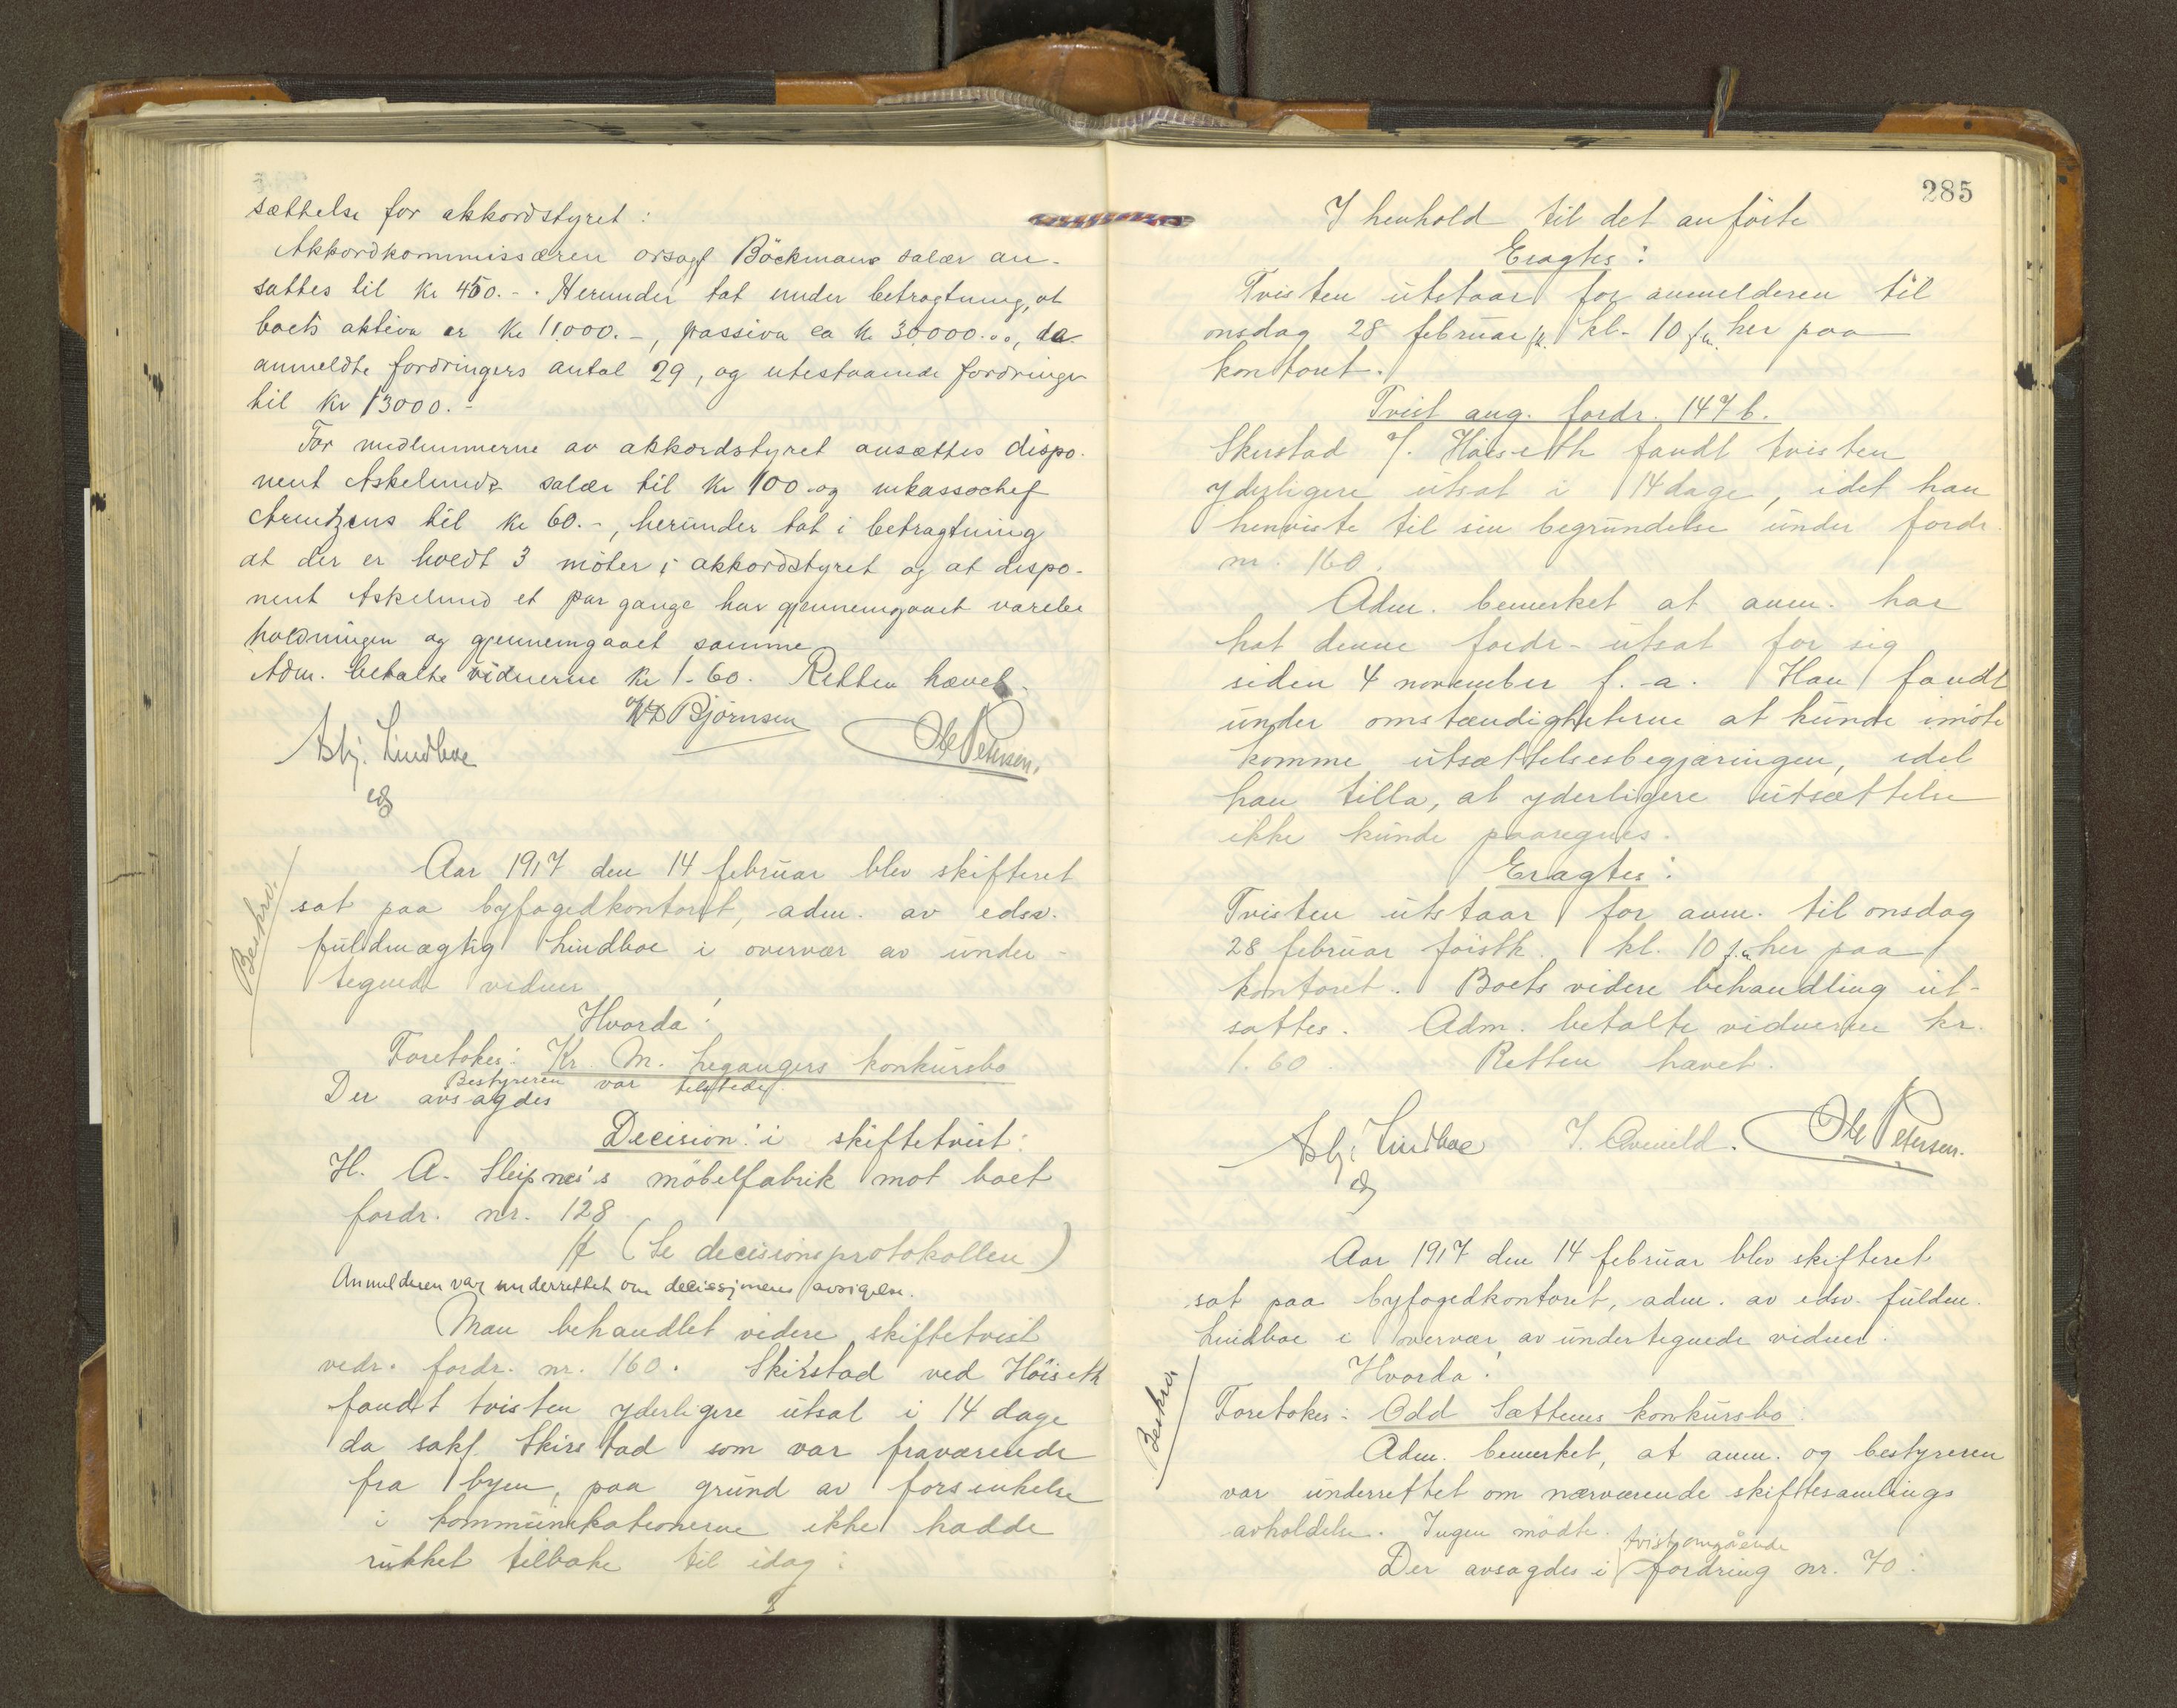 sættelse for akkordstyret:
Akkordkommissæren orsagf Böckmans salær an-
sattes til kr 450.-. Herunder tat under betragtning, at
boets aktiva er kr 11000.-, passiva ca kr 30.000..., de
anmeldte fordringers antal 29, og utestaaende fordringer
til kr 13000.-
For medlemmerne av akkordstyret ansættes dispo-
nent Askelunds salær til kr 100.- og inkassochef
Arentzens til kr 60.-, herunder tat i betragtning
at der er holdt 3 möter i akkordstyret og at dispo-
nent Askelund et par gange har gjennemgaaet varebe
holdningen og gjennemgaaet samme
Adm. betalte vidnerne kr 1.60. Retten hævet.
Asbj. Lindboe KD Björnsen Ole Petersen.
edsv
Beskrev.
Aar 1917 den 14 februar blev skifteret
sat paa byfogedkontoret, adm. av edsv.
fuldmægtig Lindboe i overvær av under-
tegnede vidner
Hvorda!
Foretokes: Kr. M. Legangers konkursbo
Bestyreren var tilstede
Der avsagdes
Decision: i skiftetvist:
H. A. Sleipnes's möbelfabrik mot boet
fordr. nr. 128
(Se decisionsprotokollen)
Anmelderen var underrettet om decissjonens avsigelse.
Man behandlet videre skiftetvist
vedr. fordr. nr. 160. Skirstad ved Höiseth
fandt tvisten yderligere utsat i 14 dage
da sakf. Skirstad som var fraværende
fra byen, paa grund av forsinkelse
i kommunikationerne ikke hadde
rukket tilbake til idag:
285
I henhold til det anförte
Eragtes:
Tvisten utstaar for anmelderen til
onsdag 28 februar fk. kl. 10 fm. her paa
kontoret.
Tvist ang. fordr. 147 b.
Skirstad v/. Höiseth fandt tvisten
yderligere utsat i 14 dage, idet han
henviste til sin begrundelse under fordr.
nr. 160.
Adm. bemerket at anm. har
hat denne fordr. utsat for sig
siden 4 november f. a. Han fandt
under omstændigheterne at kunde imöte
komme utsættelsesbegjæringen, idet
han tilla, at yderligere utsættelse
ikke kunde paaregnes.
Eragtes:
Tvisten utstaar for anm. til onsdag
28 februar förstk. kl. 10 f.m. her paa
kontoret. Boets videre behandling ut-
sattes. Adm. betalte vidnerne kr.
1.60. Retten hævet.
Asbj. Lindboe Ole Petersen.
edsv
Aar 1917 den 14 februar blev skifteret
sat paa byfogedkontoret, adm. av edsv. fuldm.
Lindboe i overvær av undertegnede vidner.
Hvorda!
Beskrev
Foretokes: Odd Sættems konkursbo.
Adm. bemerket, at anm. og bestyreren
var underrettet om nærværende skiftesamlings
avholdelse. Ingen mödte.
tvist omgående
Der avsagdes i fordring nr. 70: